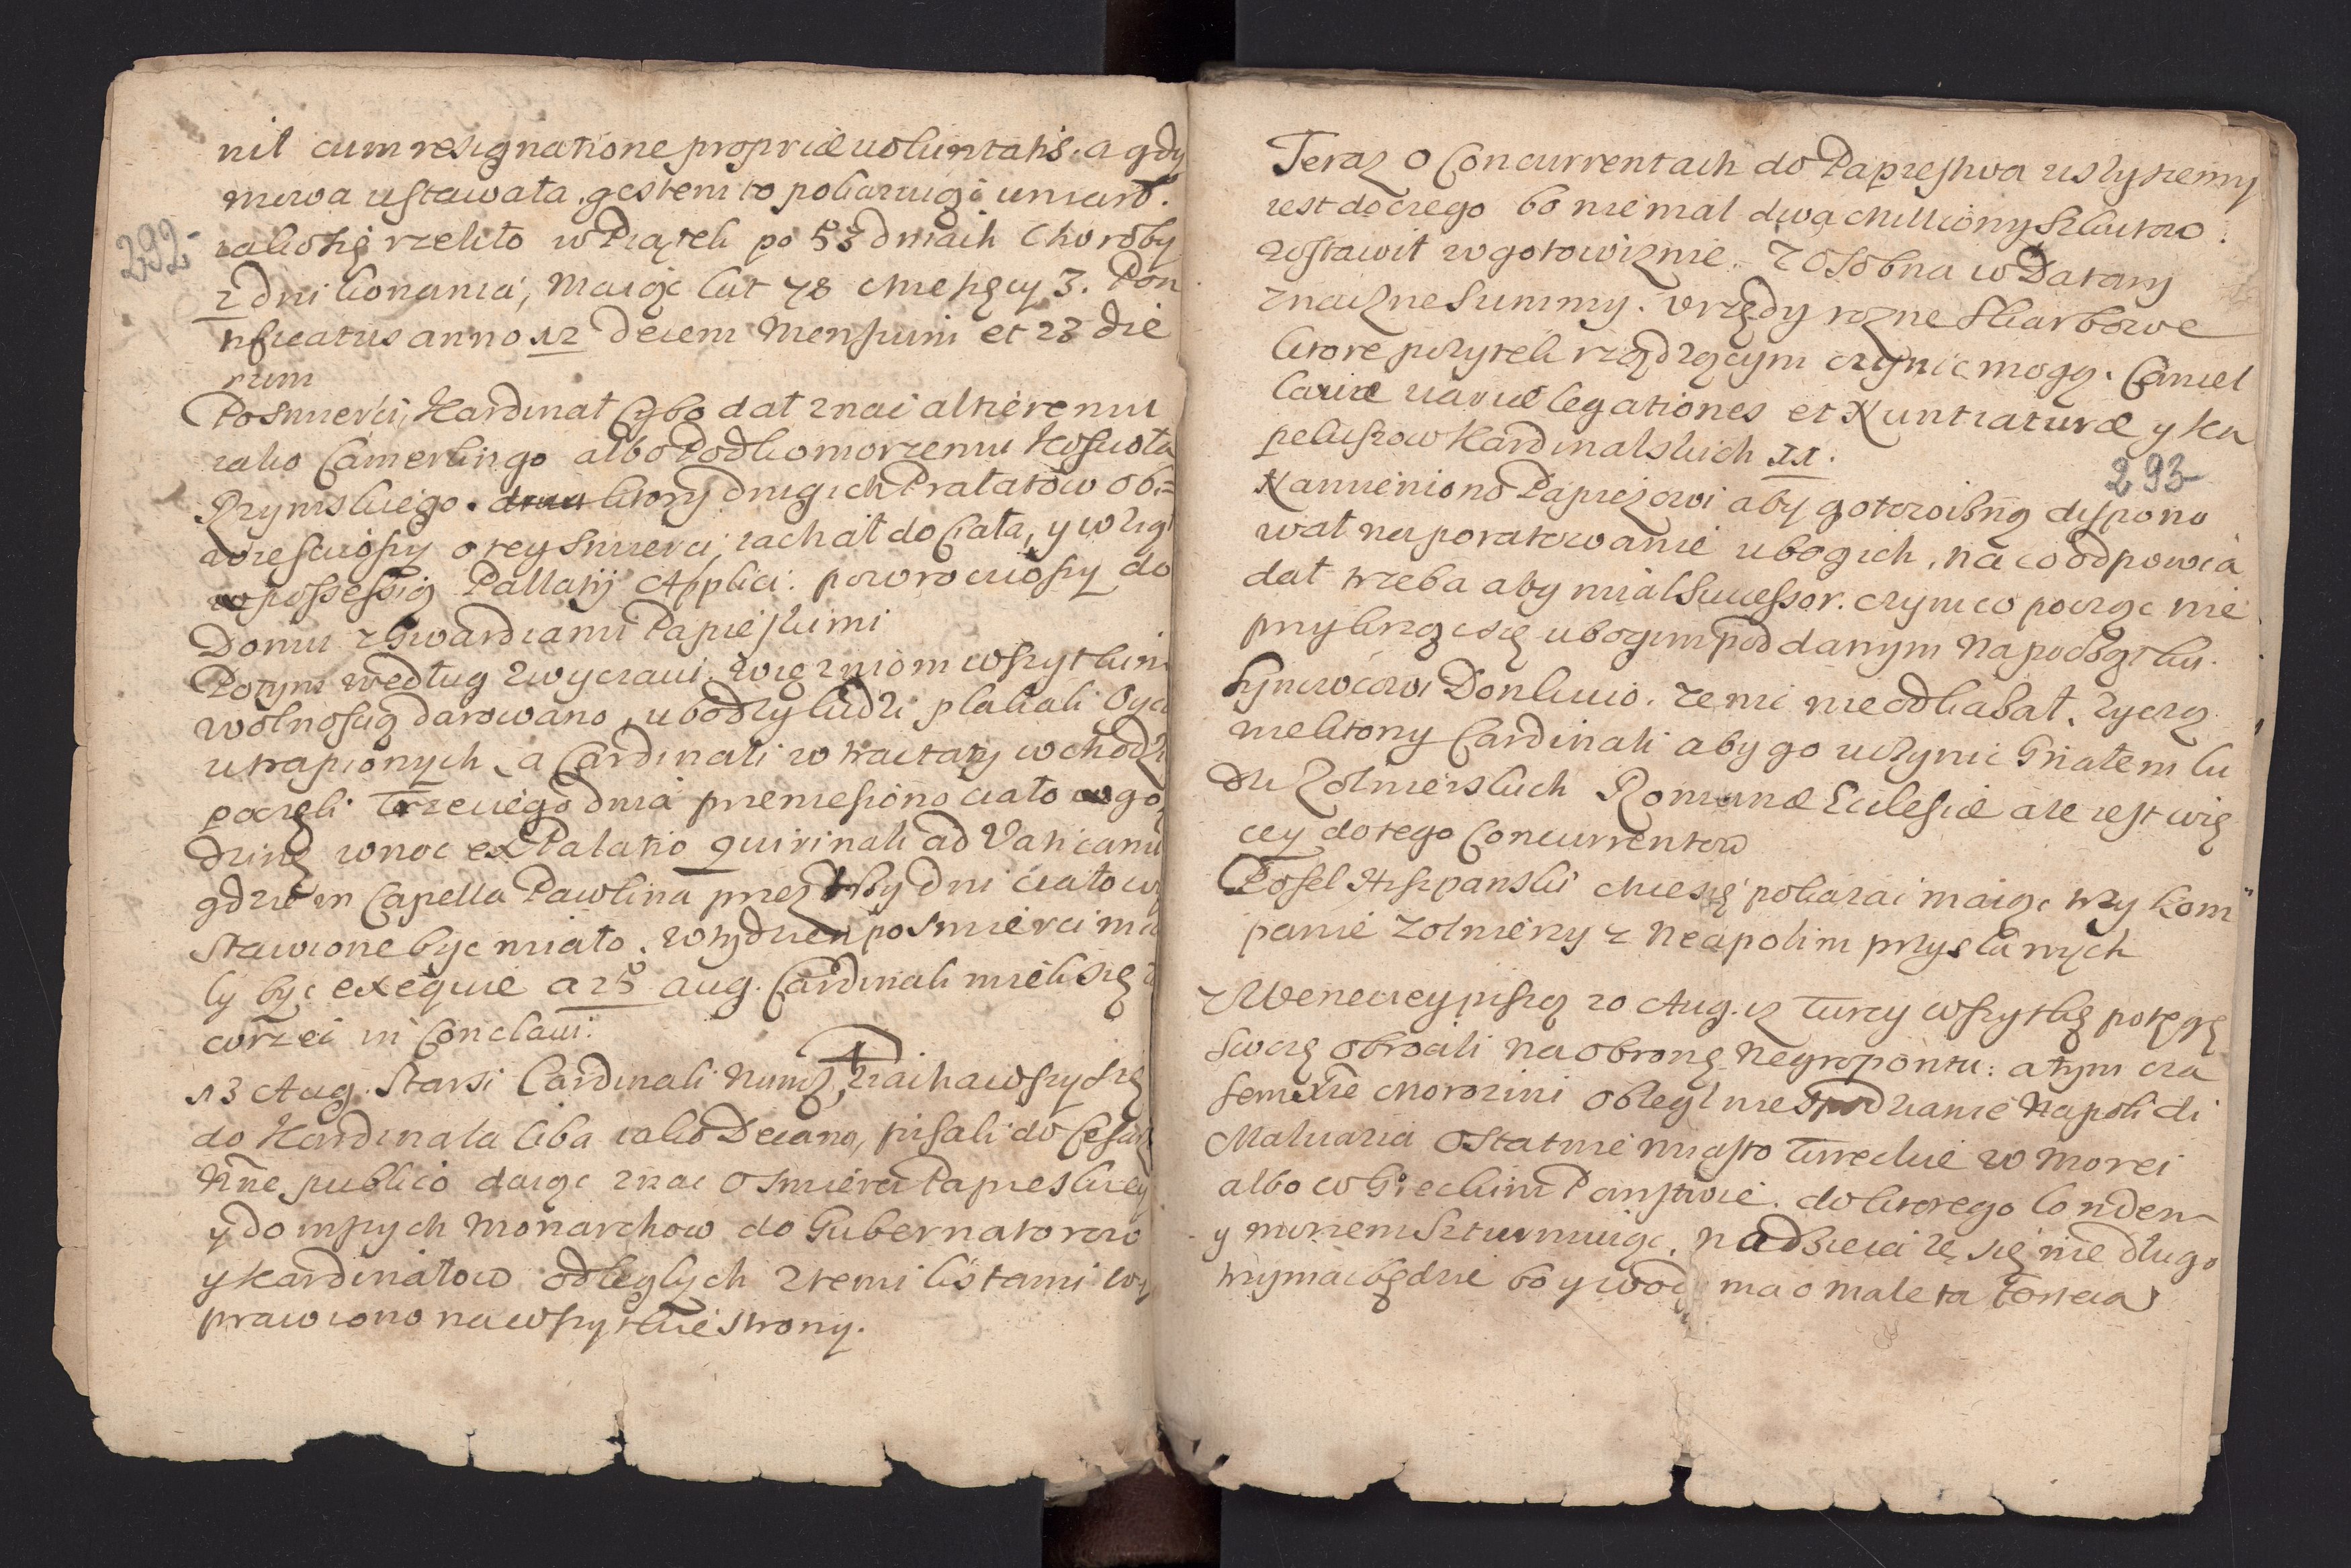 nił cum resignatione propriæ voluntatis. a gdy
mowa ustawała, gestem to pokazuiąc umarł.
iako się rzekło w Piątek po 53 dniach Choroby
292
2 dni konania, Maiąc lat 78 Miesięcy 3. Pon
tificatus anno 12 decem Mensium et 23 die
rum
Po Smierci, Kardinał Cybo dał znać altieremu
iako Camerlingo albo Podkomorzemu Koscioła
Rzymskiego. ktory drugich Prałatow ob=
wiesciwszy o tey Smierci, iachał do Ciała, y wziął
possessią Pallatÿ Applici. powrociwszy do
Domu z Gwardiami Papieskimi
Potym według zwyczaiu. więzniom wszytkim
wolnoscią darowano, ubodzy ludzi plakali Oyca
utrapionych, a Cardinali w tractaty wchodzi
poczęli Trzeciego dnia przeniesiono ciało w go
dzinę w noc ex Palatio Quirinali ad Vaticanu
gdzie in Capella Pawlina przez trzy dni ciało wy
stawione byc miało. w tydzien po Smierci mia
ly byc exequie a 25 aug. Cardinali mieli się za
wrzeć in Conclavi.
13 Aug. Starsi Cardinali Num: 4, ziachawszy się
do Kardinała Ciba iako Decana, pisali do Cesarz
Nne publico daiąc znac o Smierci Papieskiey
y do inszych Monarchow do Gubernatorow
y Kardinałow odległych z temi listami wy
prawiono na wszytkie strony.
Teraz o Concurrentach do Papiestwa uslyszemy
iest do czego bo niemal dwa Milliony Szkutow
zostawił w gotowiznie. Z Osobna w Datary
znaczne Summy. Urzędy rozne Skarbowe
ktore pozytek rządzącym czynic mogą. Cancel
lariæ variæ legationes et Nuntiaturæ y Ka
peluszow Kardinalskich XX.
293
Namieniono Papiezowi aby gotowizną dispono
wał na poratowanie ubogich, na co odpowia
dał trzeba aby mial Successor. czym co począc nie
przykrząc się ubogim poddanym na podatku.
Synowcowi Don Livio. ze mi nie odkasał. zyczą
niektorzy Cardinali aby go uczynic Gnałem lu
dzi Zolnierskich Romanæ Ecclesiæ ale iest wię
cey do tego Concurrentow
Posel Hiszpanski chce się pokazać maiąc trzy kom
panie Zolnierzy z Neapolim przysłanych
Z Weneciey piszą 20 Aug. iz Turcy wszytkę potęgę
swoię obrocili na obronę Negropontu: a tym cza
sem Xże Morozini oblegl niespodzianie Napoli di
Maluazia ostatnie miasto Tureckie w Morei
albo w Greckim Panstwie. do ktorego londem
y morzem szturmuiąc, nadzieia ze się nie długo
trzymac będzie bo y wody ma o male ta Forteca